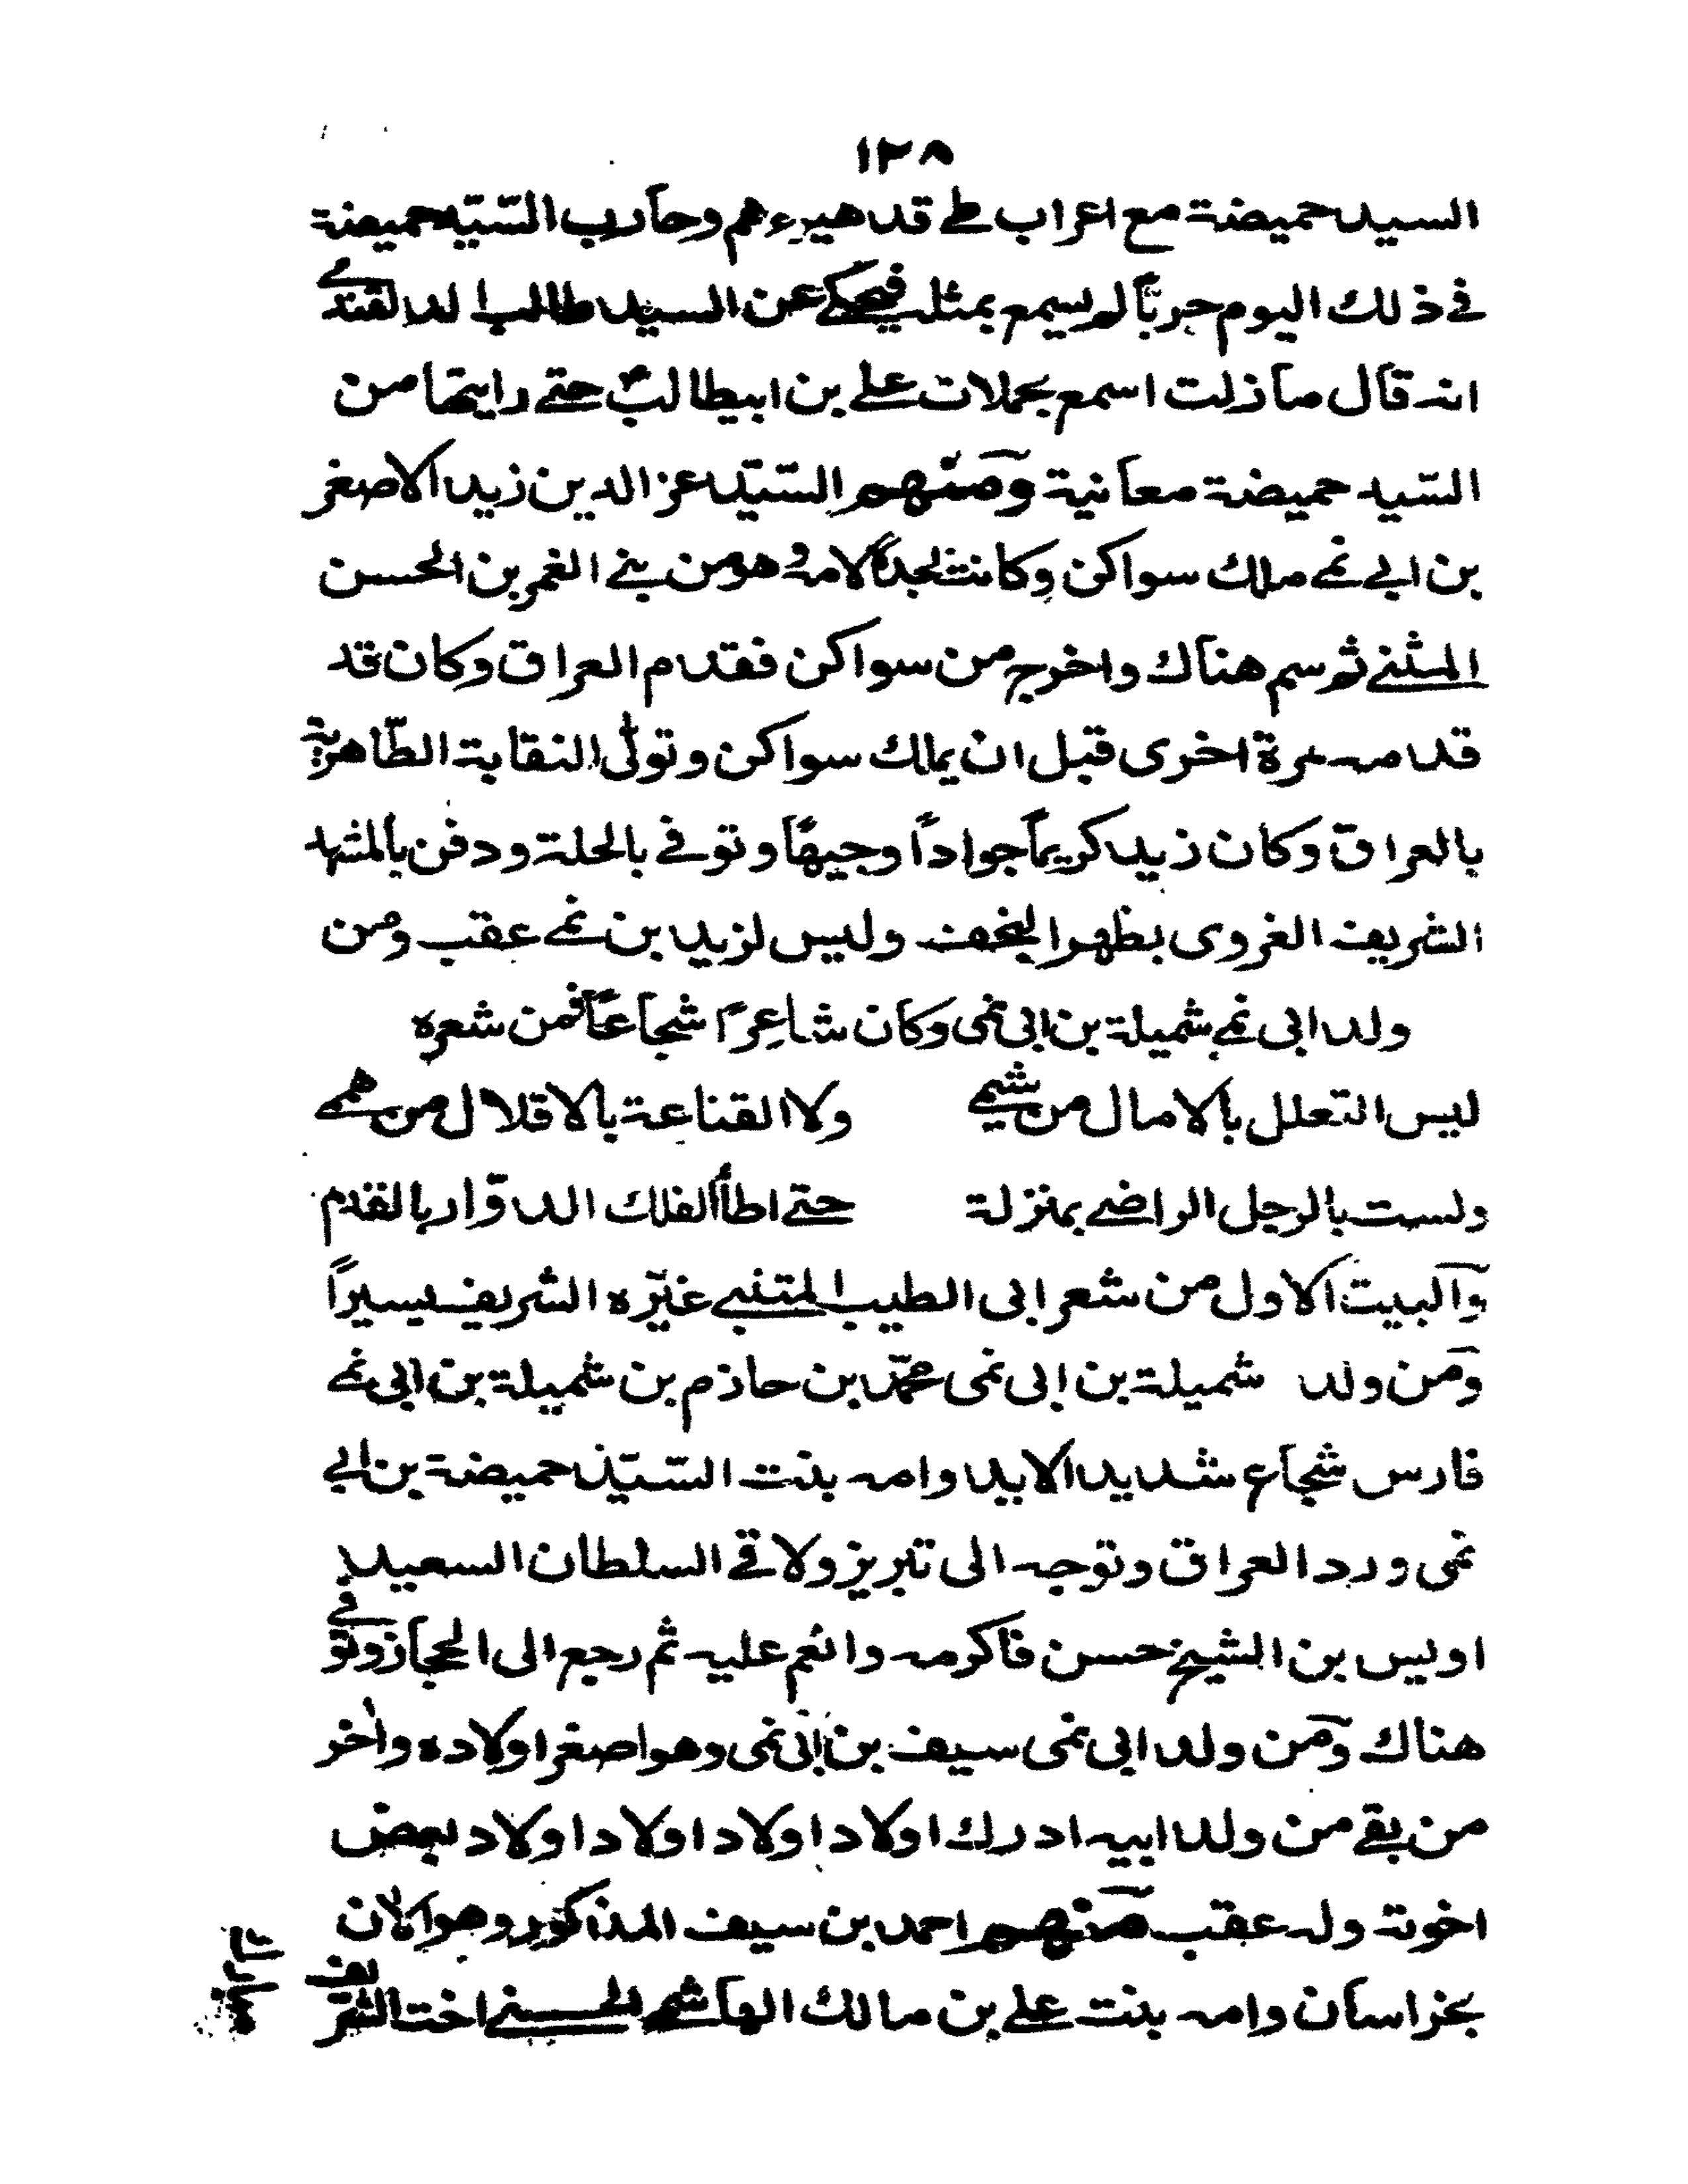 ١٢٨
السيد حميضة مع اعراب طے قد هيرءهم وحارب السّيّد حميضة
فے ذلك اليوم حرباً لم يسمع بمثله فيحكے عن السيد طالب الدلقندے
انه قال ما زلت اسمع بحملات علے بن ابيطالبؑ حتے رايتها من
السّيد حميضة معانية ومنهم السّيّد عز الدين زيد الاصغر
بن ابے نمے ملك سواكن وكانت لجده لامه وهو من بنے الغمر بن الحسن
المثنے ثم سم هناك واخرج من سواكن فقدم العراق وكان قد
قدامه مرة اخرى قبل ان يملك سواكن وتولّى النقابة الطّاهرية
بالعراق وكان زيد كريماً جواداً وجيهاً وتوفے بالحلة ودفن بالمشهد
الشريف الغروى بظهر النجف وليس لزيد بن نمے عقب ومن
ولد ابى نمے شميلة بن ابى نمى وكان شاعِراً شجاعاً فمن شعره
ليس التعلل بالامال من شيمے ولا القناعة بالاقلال من هممے
ولست بالرجل الراضے بمنزلة حتے اطأ الفلك الدوّار بالقدم
والبيت الاول من شعر ابى الطيب المتنبے غيّره الشريف يسيراً
ومن ولد شميلة بن ابى نمى محمّد بن حازم بن شميلة بن ابى نمے
فارس شجاع شديد الايد وامه بنت السّيّد حميضة بن ابے
نمى ورد العراق وتوجه الى تبريز ولاقے السلطان السعيد
اويس بن الشيخ حسن فاكرمه وانعم عليه ثم رجع الى الحجاز وتوفے
هناك ومن ولد ابى نمى سيف بن ابى نمى وهو اصغر اولاده واخر
من بقے من ولد ابيه ادرك اولاد اولاد اولاد اولاد بعض
اخوته وله عقب منهم احمد بن سيف المذكور وهو الان
بخراسان وامه بنت علے بن مالك الهاشمے الحسنے اخت الشريف